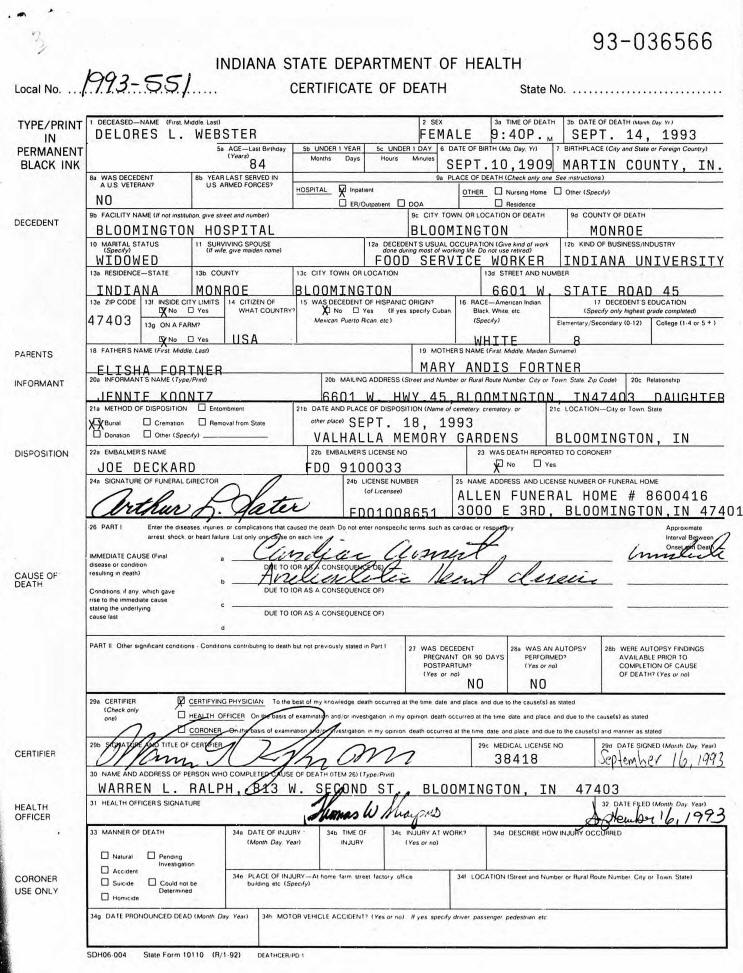 93-036566
INDIANA STATE DEPARTMENT OF HEALTH
Local No. ...1993-551...... CERTIFICATE OF DEATH State No. ........................
TYPE/PRINT IN PERMANENT BLACK INK
1 DECEASED—NAME (First, Middle, Last) 2 SEX 3a TIME OF DEATH 3b DATE OF DEATH (Month, Day, Yr)
DELORES L. WEBSTER FEMALE 9:40P. M SEPT. 14, 1993
5a AGE—Last Birthday (Years) 5b UNDER 1 YEAR 5c UNDER 1 DAY 6 DATE OF BIRTH (Mo, Day, Yr) 7 BIRTHPLACE (City and State or Foreign Country)
84 Months Days Hours Minutes SEPT.10,1909 MARTIN COUNTY, IN.
8a WAS DECEDENT A U.S. VETERAN? 8b YEAR LAST SERVED IN US ARMED FORCES? 9a PLACE OF DEATH (Check only one See instructions)
NO HOSPITAL X Inpatient ER/Outpatient DOA OTHER Nursing Home Other (Specify) Residence
DECEDENT
9b FACILITY NAME (If not institution, give street and number) 9c CITY TOWN, OR LOCATION OF DEATH 9d COUNTY OF DEATH
BLOOMINGTON HOSPITAL BLOOMINGTON MONROE
10 MARITAL STATUS (Specify) 11 SURVIVING SPOUSE (If wife, give maiden name) 12a DECEDENT'S USUAL OCCUPATION (Give kind of work done during most of working life Do not use retired) 12b KIND OF BUSINESS/INDUSTRY
WIDOWED FOOD SERVICE WORKER INDIANA UNIVERSITY
13a RESIDENCE—STATE 13b COUNTY 13c CITY TOWN OR LOCATION 13d STREET AND NUMBER
INDIANA MONROE BLOOMINGTON 6601 W. STATE ROAD 45
13e ZIP CODE 13f INSIDE CITY LIMITS 14 CITIZEN OF WHAT COUNTRY? 15 WAS DECEDENT OF HISPANIC ORIGIN? 16 RACE—American Indian Black, White, etc (Specify) 17 DECEDENT'S EDUCATION (Specify only highest grade completed)
X No Yes X No Yes (If yes specify Cuban Mexican, Puerto Rican, etc)
47403 13g ON A FARM? Elementary/Secondary (0-12) College (1-4 or 5+)
X No Yes USA WHITE 8
PARENTS
18 FATHER'S NAME (First, Middle, Last) 19 MOTHER'S NAME (First, Middle, Maiden Surname)
ELISHA FORTNER MARY ANDIS FORTNER
INFORMANT
20a INFORMANT'S NAME (Type/Print) 20b MAILING ADDRESS (Street and Number or Rural Route Number City or Town State, Zip Code) 20c Relationship
JENNIE KOONTZ 6601 W. HWY.45,BLOOMINGTON, IN47403 DAUGHTER
21a METHOD OF DISPOSITION Entombment 21b DATE AND PLACE OF DISPOSITION (Name of cemetery, crematory, or other place) 21c LOCATION—City or Town State
XX Burial Cremation Removal from State SEPT. 18, 1993
Donation Other (Specify) VALHALLA MEMORY GARDENS BLOOMINGTON, IN
DISPOSITION
22a EMBALMER'S NAME 22b EMBALMER'S LICENSE NO 23 WAS DEATH REPORTED TO CORONER?
JOE DECKARD FDO 9100033 X No Yes
24a SIGNATURE OF FUNERAL DIRECTOR 24b LICENSE NUMBER (of Licensee) 25 NAME ADDRESS AND LICENSE NUMBER OF FUNERAL HOME
ALLEN FUNERAL HOME # 8600416
Arthur FD01008651 3000 E 3RD, BLOOMINGTON,IN 47401
26 PART I Enter the diseases, injuries, or complications that caused the death Do not enter nonspecific terms, such as cardiac or respiratory arrest, shock, or heart failure List only one cause on each line Approximate Interval Between Onset and Death
IMMEDIATE CAUSE (Final disease or condition resulting in death) a Cardiac arrest immediate
DUE TO (OR AS A CONSEQUENCE OF)
CAUSE OF DEATH
b Heart disease
Conditions if any, which gave rise to the immediate cause stating the underlying cause last
DUE TO (OR AS A CONSEQUENCE OF)
c
DUE TO (OR AS A CONSEQUENCE OF)
d
PART II Other significant conditions - Conditions contributing to death but not previously stated in Part I 27 WAS DECEDENT PREGNANT OR 90 DAYS POSTPARTUM? (Yes or no) 28a WAS AN AUTOPSY PERFORMED? (Yes or no) 28b WERE AUTOPSY FINDINGS AVAILABLE PRIOR TO COMPLETION OF CAUSE OF DEATH? (Yes or no)
NO NO
29a CERTIFIER (Check only one) X CERTIFYING PHYSICIAN To the best of my knowledge death occurred at the time date and place and due to the cause(s) as stated
HEALTH OFFICER On the basis of examination and/or investigation in my opinion death occurred at the time date and place and due to the cause(s) as stated
CORONER On the basis of examination and/or investigation, in my opinion death occurred at the time date and place and due to the cause(s) and manner as stated
CERTIFIER
29b SIGNATURE AND TITLE OF CERTIFIER 29c MEDICAL LICENSE NO 29d DATE SIGNED (Month Day Year)
38418 September 16, 1993
30 NAME AND ADDRESS OF PERSON WHO COMPLETED CAUSE OF DEATH (ITEM 26) (Type/Print)
WARREN L. RALPH, 813 W. SECOND ST., BLOOMINGTON, IN 47403
HEALTH OFFICER
31 HEALTH OFFICER'S SIGNATURE 32 DATE FILED (Month Day Year)
Thomas W September 16, 1993
33 MANNER OF DEATH 34a DATE OF INJURY (Month Day Year) 34b TIME OF INJURY 34c INJURY AT WORK? (Yes or no) 34d DESCRIBE HOW INJURY OCCURRED
Natural Pending Investigation
Accident
CORONER USE ONLY
Suicide Could not be Determined
Homicide
34e PLACE OF INJURY—At home farm street factory office building etc (Specify) 34f LOCATION (Street and Number or Rural Route Number City or Town State)
34g DATE PRONOUNCED DEAD (Month Day Year) 34h MOTOR VEHICLE ACCIDENT? (Yes or no) If yes specify driver passenger pedestrian etc
SDH06-004 State Form 10110 (R/1-92) DEATHCER/PD 1